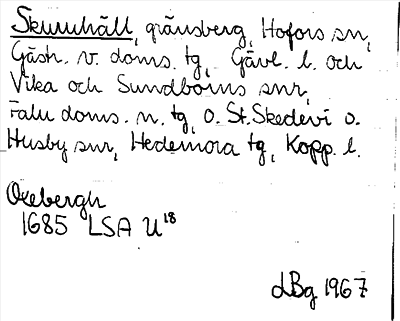 Skinnhäll, gränsberg, Hofors sn,
Gästr. v. doms. tg, Gävl. l. och
Vika och Sundborns snr,
Falu doms. n. tg, o. St. Skedevi o.
Husby snr, Hedemora tg, Kopp. l.
Oxebergh
1685 LSA U18
LBg 1967